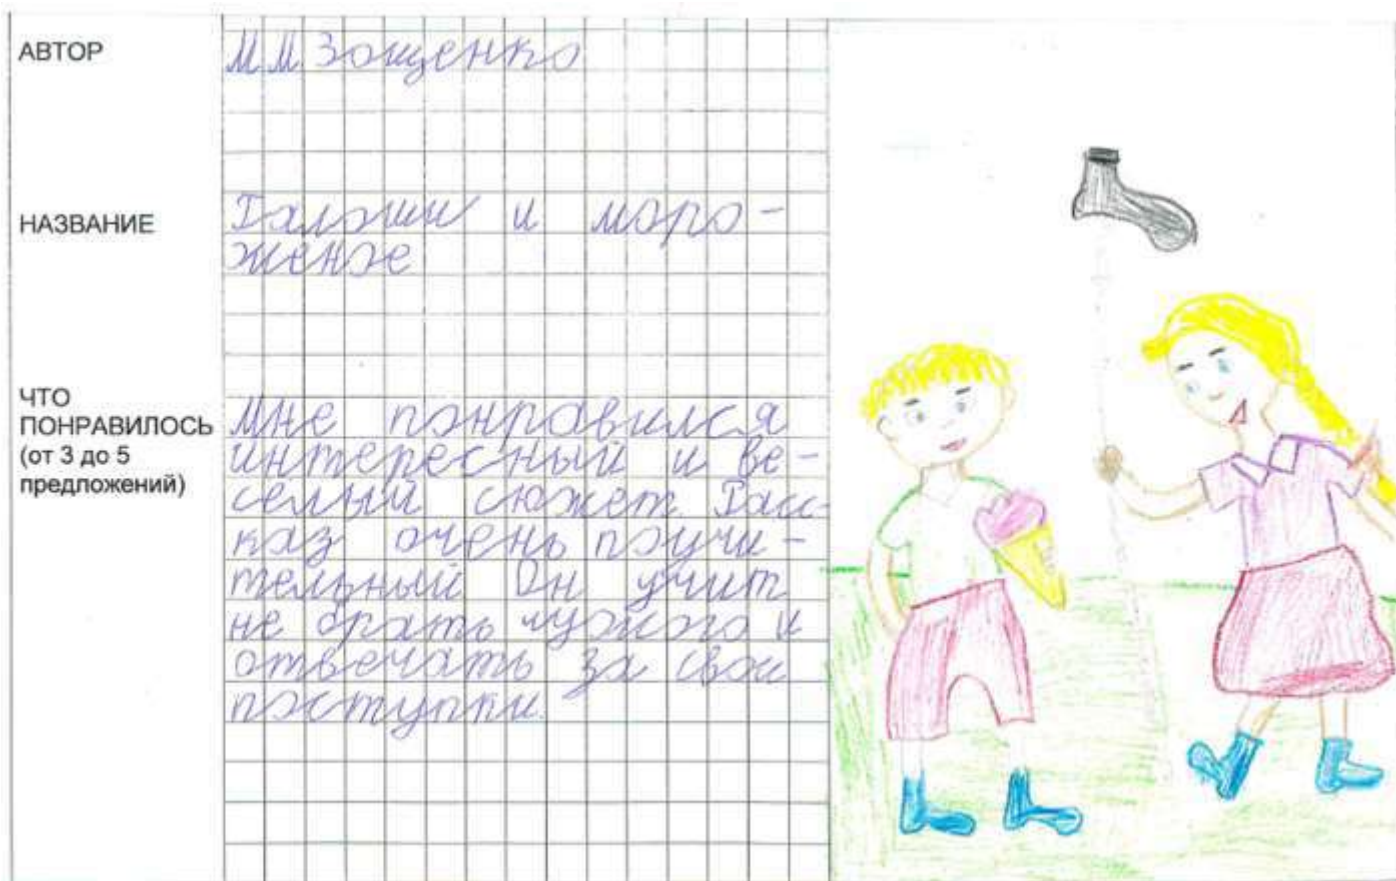 АВТОР
М М Зощенко
НАЗВАНИЕ
Галоши и моро-
женое
ЧТО
ПОНРАВИЛОСЬ
(от 3 до 5
предложений)
Мне понравился
интересный и ве-
селый сюжет Расс-
каз очень поучи-
тельный Он учит
не брать чужого и
отвечать за свои
поступки.